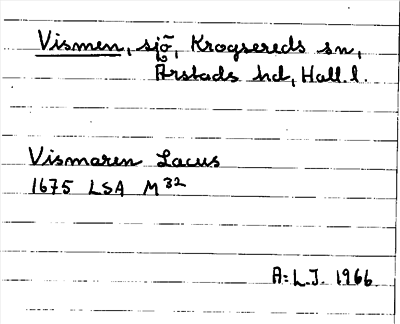 Vismen, sjö, Krogsereds sn,
Årstads hd, Hall. l.
Vismaren Lacus
1675 LSA M 32
A:L.J. 1966